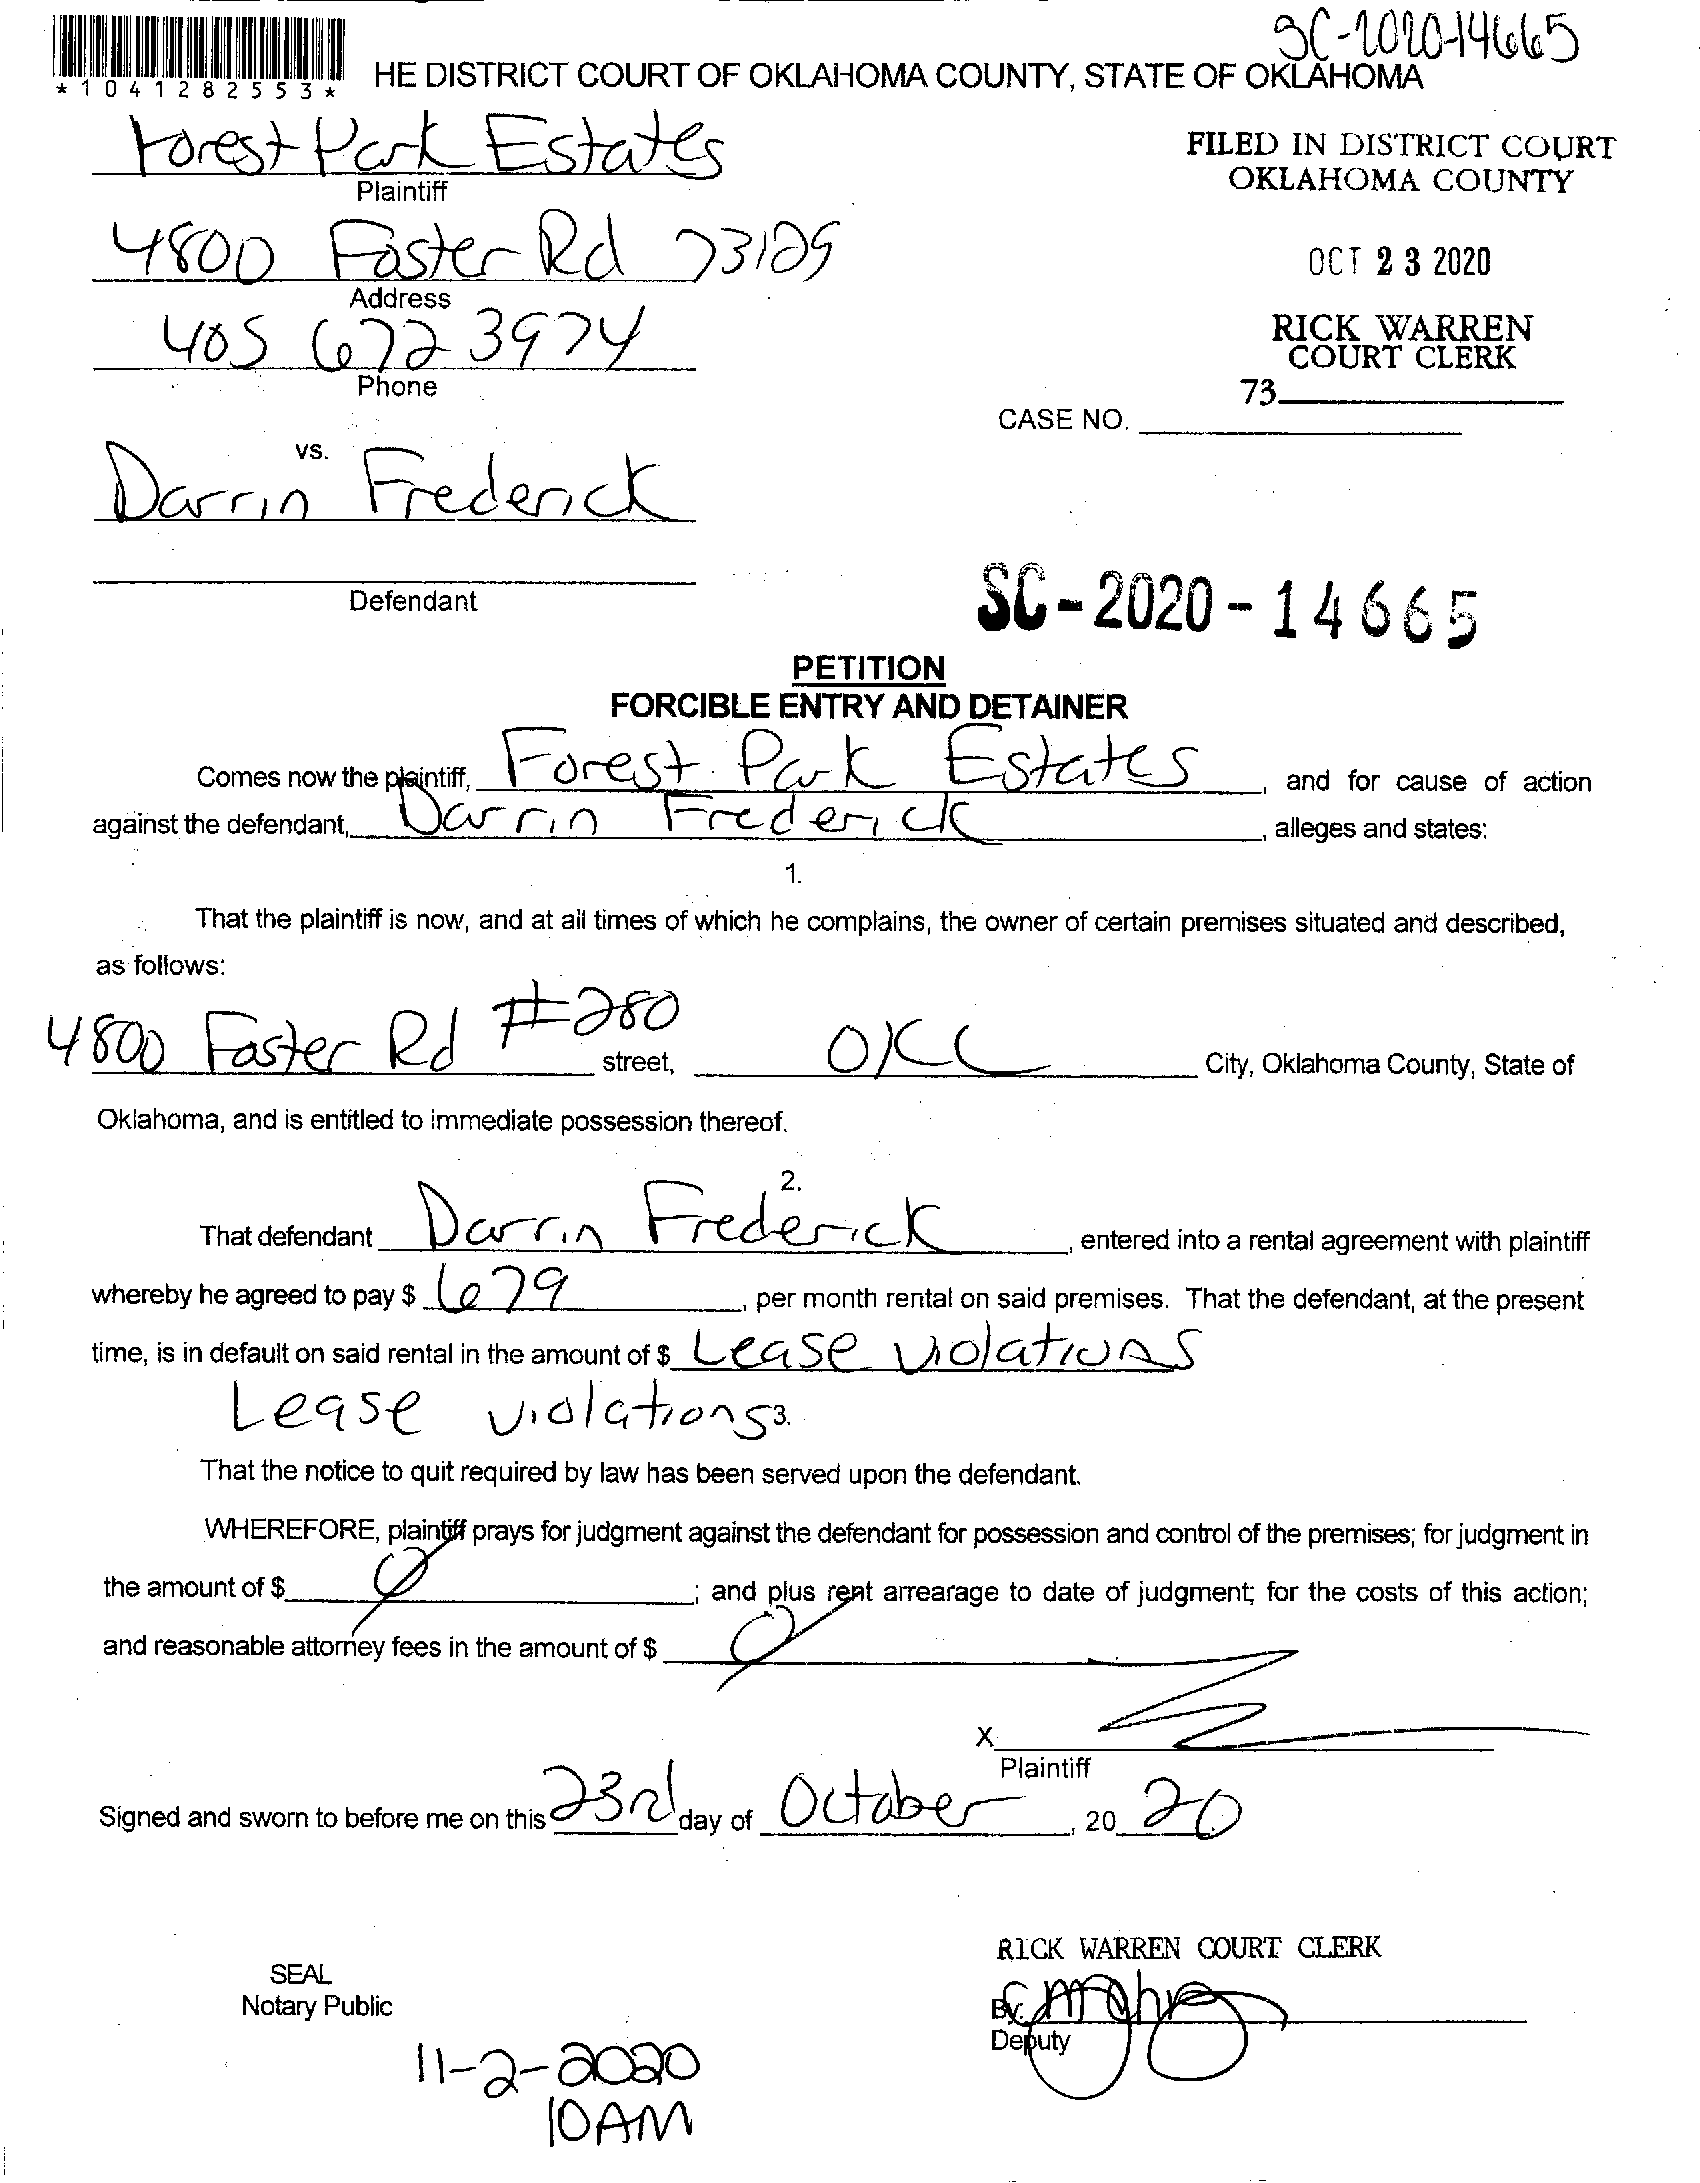 SC-2020-14665
*1041282553*
HE DISTRICT COURT OF OKLAHOMA COUNTY, STATE OF OKLAHOMA
Forest Park Estates
Plaintiff
FILED IN DISTRICT COURT
OKLAHOMA COUNTY
4800 Foster Rd 73129
Address
OCT 23 2020
405 672 3974
Phone
RICK WARREN
COURT CLERK
73
CASE NO.
vs.
Darrin Frederick
Defendant
SC-2020-14665
PETITION
FORCIBLE ENTRY AND DETAINER
Comes now the plaintiff, Forest Park Estates, and for cause of action
against the defendant, Darrin Frederick, alleges and states:
1.
That the plaintiff is now, and at all times of which he complains, the owner of certain premises situated and described,
as follows:
4800 Foster Rd #280 street, OKC City, Oklahoma County, State of
Oklahoma, and is entitled to immediate possession thereof.
2.
That defendant Darrin Frederick, entered into a rental agreement with plaintiff
whereby he agreed to pay $ 679, per month rental on said premises. That the defendant, at the present
time, is in default on said rental in the amount of $ Lease violations
Lease violations 3.
That the notice to quit required by law has been served upon the defendant.
WHEREFORE, plaintiff prays for judgment against the defendant for possession and control of the premises; for judgment in
the amount of $ 0; and plus rent arrearage to date of judgment; for the costs of this action;
and reasonable attorney fees in the amount of $ 0
X
Plaintiff
Signed and sworn to before me on this 23rd day of October, 20 20
RICK WARREN COURT CLERK
SEAL
Notary Public
By:
Deputy
11-2-2020
10AM